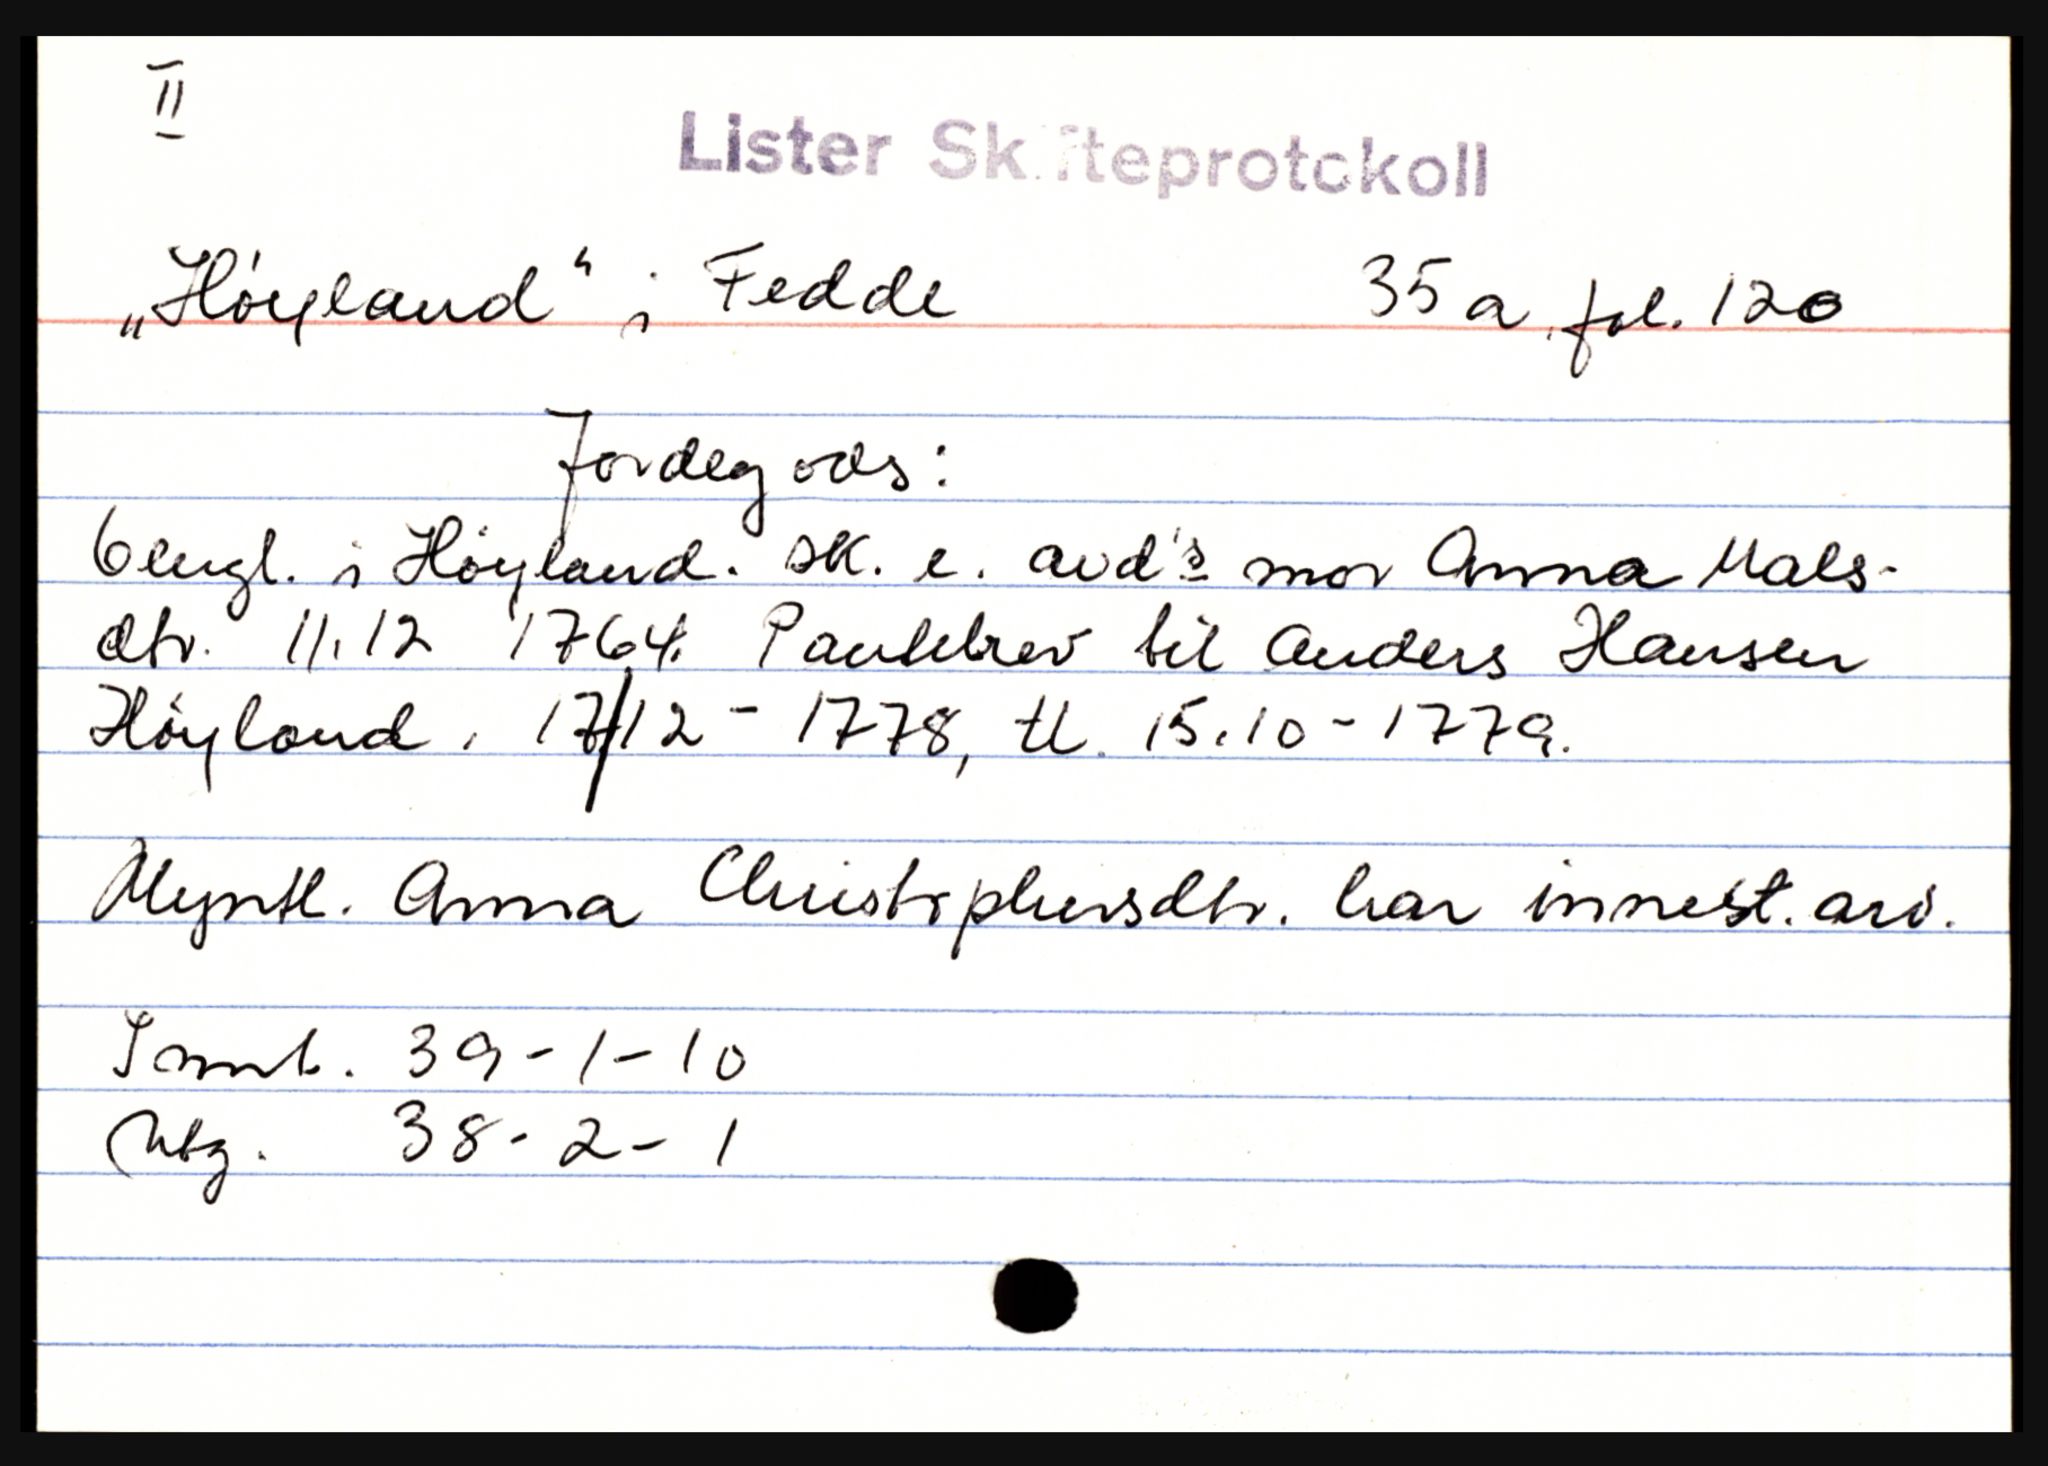 II
Lister Skifteprotokoll
„Høyland" i Fedde 35 a, fol. 120
Jordegods:
6 engl. i Høyland. sk. e. avd's mor Anna Mals-
dtr. 11.12 1764. Pantebrev til Anders Hansen
Høyland. 17/12 - 1778, tl. 15.10-1779.
Myntl. Anna Christophersdtr. har innest. arv.
Innb. 39-1-10
Utg. 38-2-1